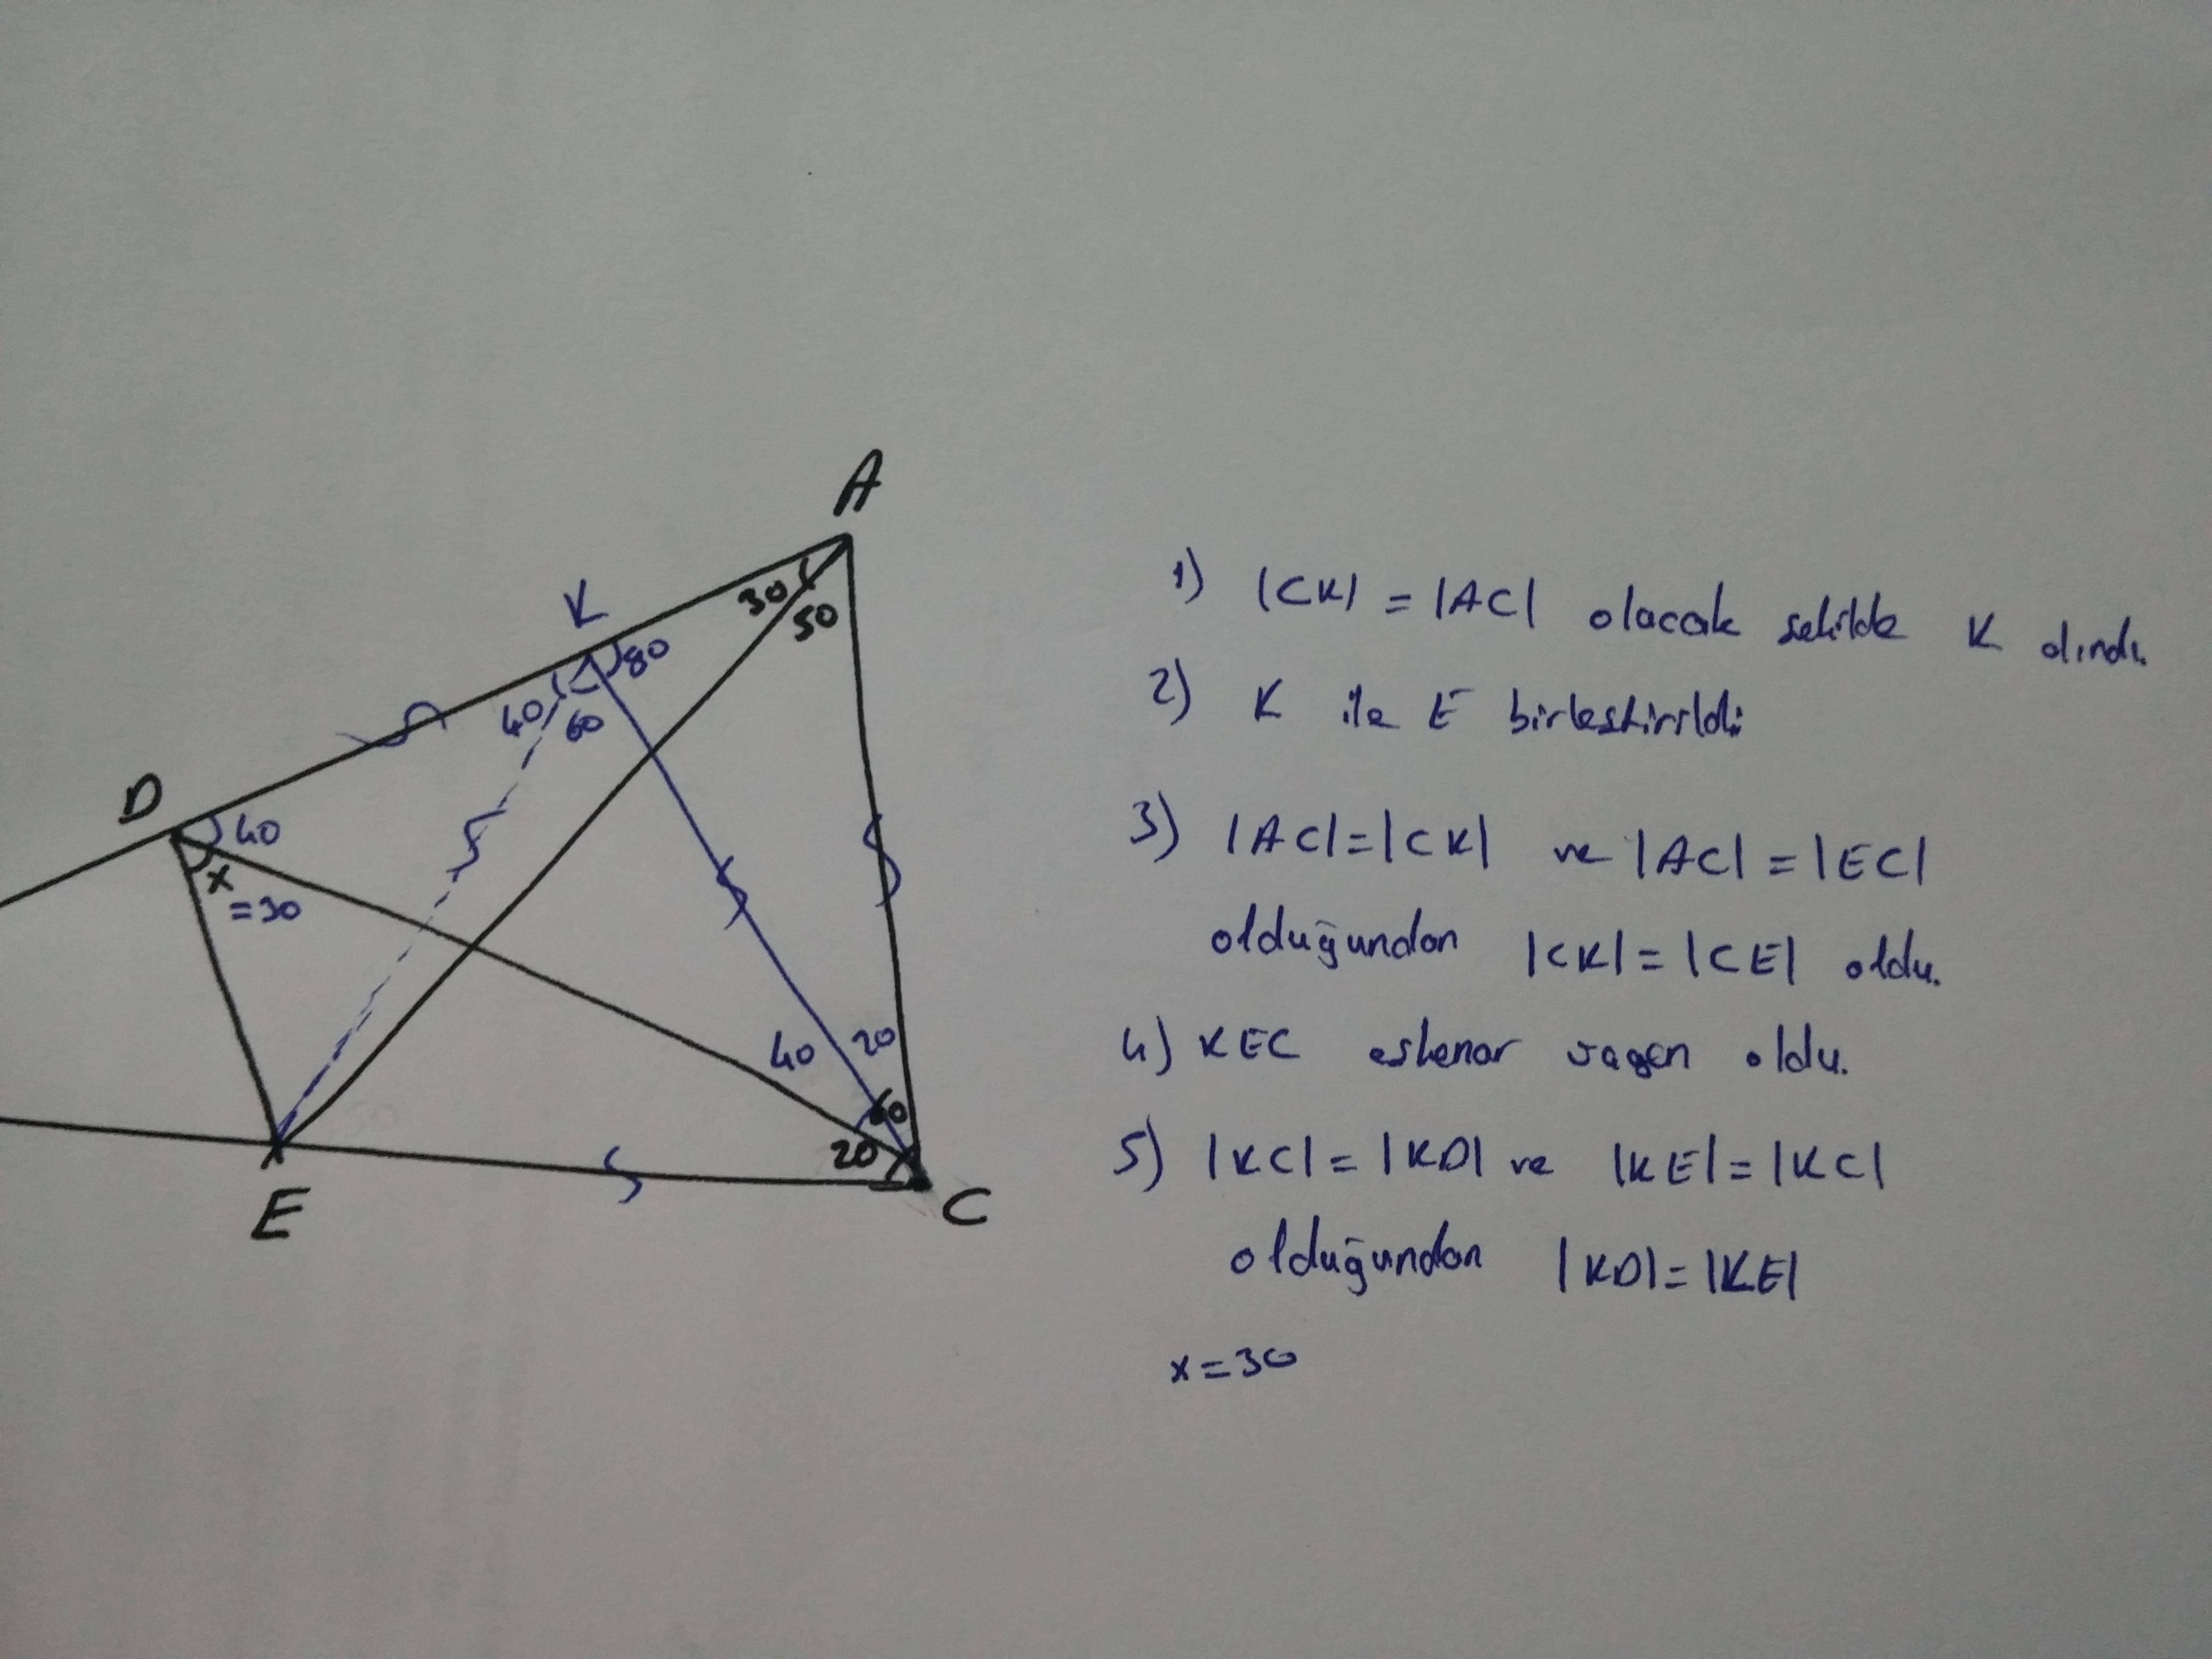 A
K
30
50
80
40
60
D
40
x
=30
40
20
60
20
E
C
1) |CK| = |AC| olacak şekilde K alındı.
2) K ile E birleştirildi
3) |AC|=|CK| ve |AC| = |EC|
olduğundan |CK|=|CE| oldu.
4) KEC eşkenar üçgen oldu.
5) |KC|=|KD| ve |KE|=|KC|
olduğundan |KD|=|KE|
x=30